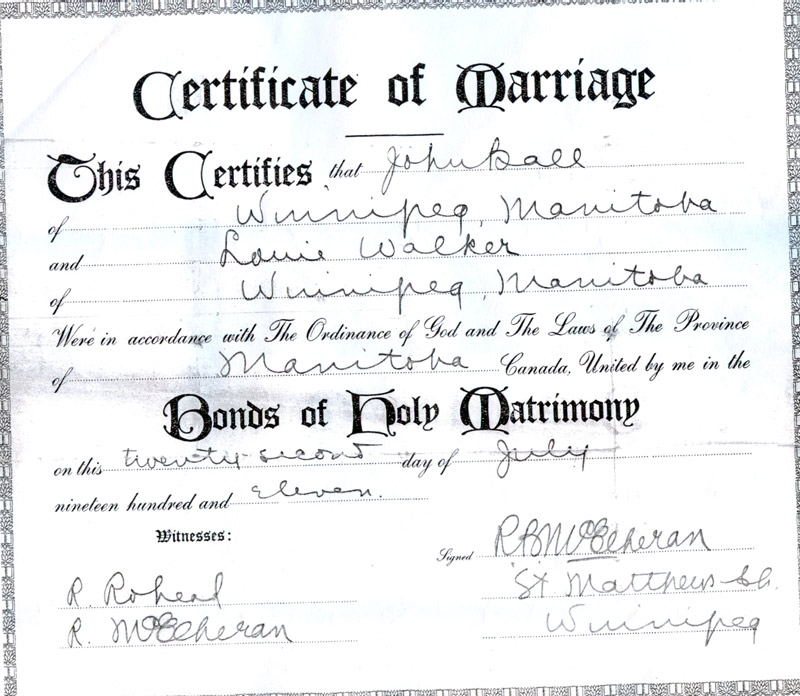 Certificate of Marriage
This Certifies that John Ball
of Winnipeg, Manitoba
and Louie Walker
of Winnipeg, Manitoba
Were in accordance with The Ordinance of God and The Laws of The Province
of Manitoba Canada, United by me in the
Bonds of Holy Matrimony
on this twenty-second day of July
nineteen hundred and eleven.
Witnesses:
Signed R B McElheran
R.
St Matthews Ch.
R. McElheran
Winnipeg